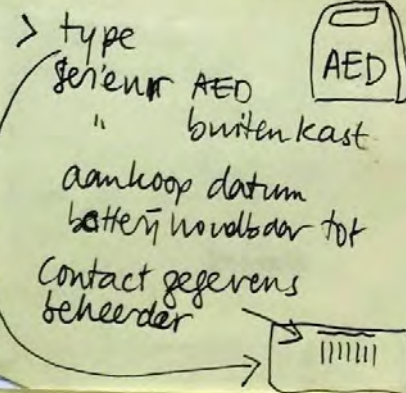 > type
serienr AED
" buitenkast
aankoop datum
batterij houdbaar tot
contact gegevens
beheerder
AED